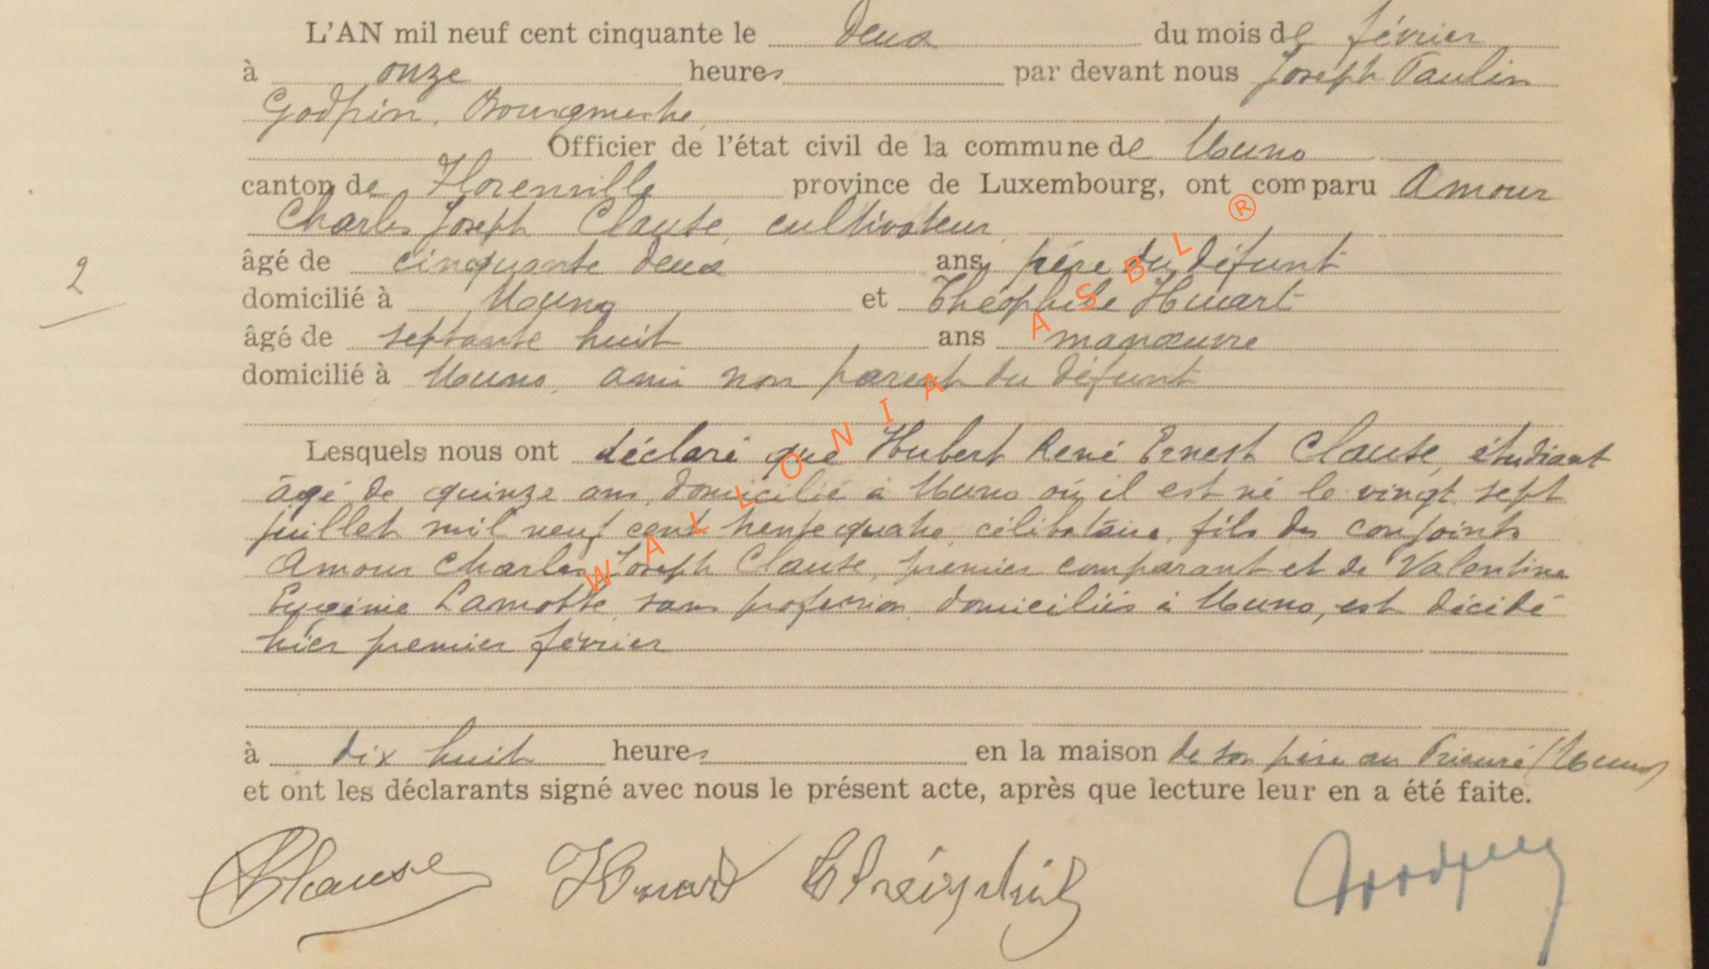 L'AN mil neuf cent cinquante le deux du mois de février
à onze heures par devant nous Joseph Paulin
Godfrin, Bourgmestre,
Officier de l'état civil de la commune de Muno
canton de Florenville province de Luxembourg, ont comparu Amour
Charles Joseph Clause, cultivateur,
âgé de cinquante deux ans, père du défunt
2
domicilié à Muno et Théophile Huart
âgé de septante huit ans manœuvre
domicilié à Muno, ami non parent du défunt
Lesquels nous ont déclaré que Hubert René Ernest Clause, étudiant
âgé de quinze ans, domicilié à Muno où il est né le vingt sept
juillet mil neuf cent trente quatre, célibataire, fils des conjoints
Amour Charles Joseph Clause, premier comparant et de Valentine
Eugénie Lamotte, sans profession, domiciliés à Muno, est décédé
hier premier février
à dix huit heures en la maison de son père au Prieuré (Muno)
et ont les déclarants signé avec nous le présent acte, après que lecture leur en a été faite.
Clause Huart
WALLONIA ASBL ®